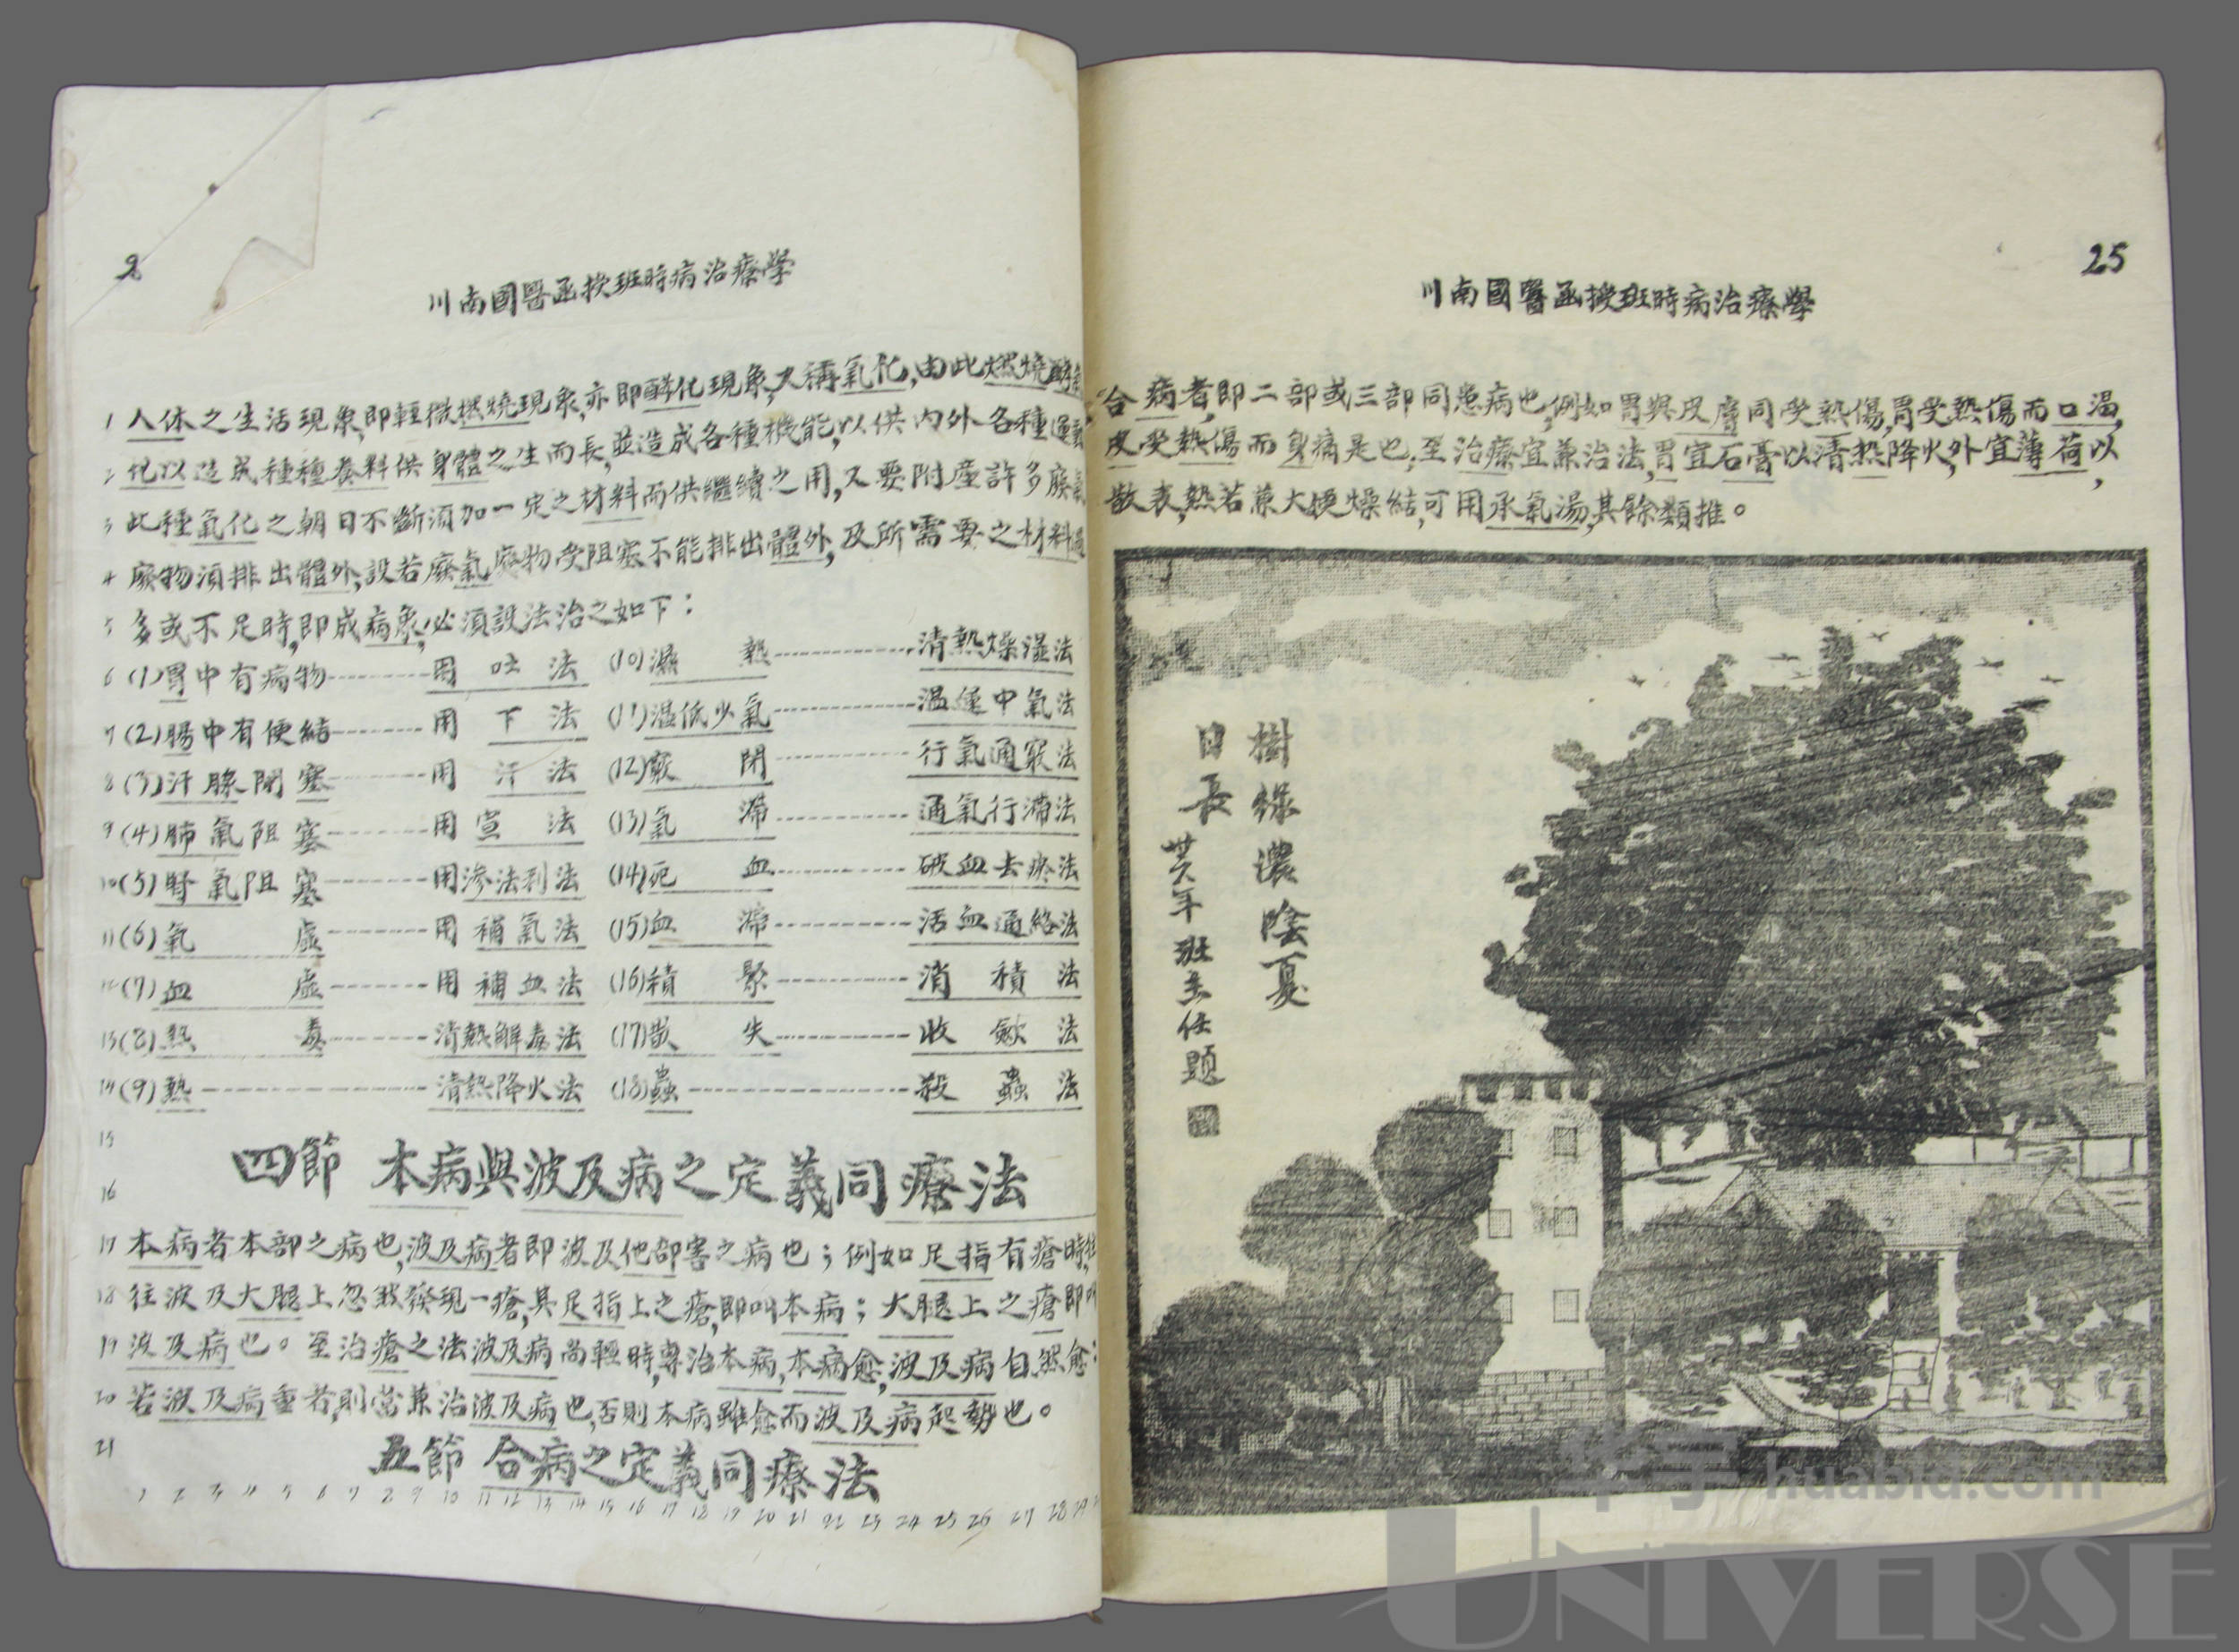 2
川南國醫函授班時病治療學
1 人体之生活現象,即輕微燃燒現象,亦即酵化現象,又稱氧化,由此燃燒酵
2 化以造成種種養料供身體之生而長,並造成各種機能,以供內外各種運動
3 此種氧化之朝日不斷須加一定之材料而供繼續之用,又要附産許多廢氣
4 廢物須排出體外,設若廢氣廢物受阻塞不能排出體外,及所需要之材料過
5 多或不足時,即成病象,必須設法治之如下:
6 (1)胃中有病物--------用吐法 (10)濕熱------------清熱燥溼法
7 (2)腸中有便結-------用下法 (11)温低少氣-----------温運中氣法
8 (3)汗腺閉塞-------用汗法 (12)竅閉-----------行氣通竅法
9 (4)肺氣阻塞-------用宣法 (13)氣滯-----------通氣行滯法
10 (5)腎氣阻塞-------用滲法利法 (14)死血-----------破血去瘀法
11 (6)氣虛-------用補氣法 (15)血滯-----------活血通絡法
12 (7)血虛-------用補血法 (16)積聚-----------消積法
13 (8)熱毒-------清熱解毒法 (17)散失-----------收斂法
14 (9)熱----------------清熱降火法 (18)蟲----------------殺蟲法
15
四節 本病與波及病之定義同療法
16
17 本病者本部之病也,波及病者即波及他部害之病也;例如足指有瘡時,往
18 往波及大腿上忽然發現一瘡,其足指上之瘡,即叫本病;大腿上之瘡即叫
19 波及病也。至治瘡之法波及病尚輕時,專治本病,本病愈,波及病自然愈;
20 若波及病重者,則當兼治波及病也,否則本病雖愈而波及病起勢也。
21
五節 合病之定義同療法
1 2 3 4 5 6 7 8 9 10 11 12 13 14 15 16 17 18 19 20 21 22 23 24 25 26 27 28 29
25
川南國醫函授班時病治療學
合病者,即二部或三部同患病也,例如胃與皮膚同受熱傷,胃受熱傷而口渴,
皮受熱傷而身痛是也,至治療宜兼治法,胃宜石膏以清熱降火,外宜薄荷以,
散表,熱若兼大便燥結,可用承氣湯,其餘類推。
樹綠濃陰夏
日長
廿六年班主任題
华宇 huabid.com
UNIVERSE